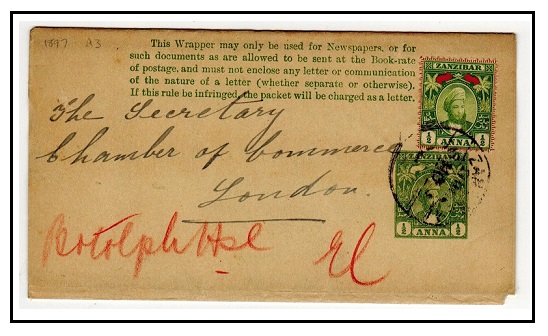 1897 H3
This Wrapper may only be used for Newspapers, or for
such documents as are allowed to be sent at the Book-rate
of postage, and must not enclose any letter or communication
of the nature of a letter (whether separate or otherwise).
If this rule be infringed, the packet will be charged as a letter.
ZANZIBAR
½ ANNA ½
The Secretary
Chamber of Commerce
London.
ZANZIBAR
½ ANNA ½
Botolph Hse EC